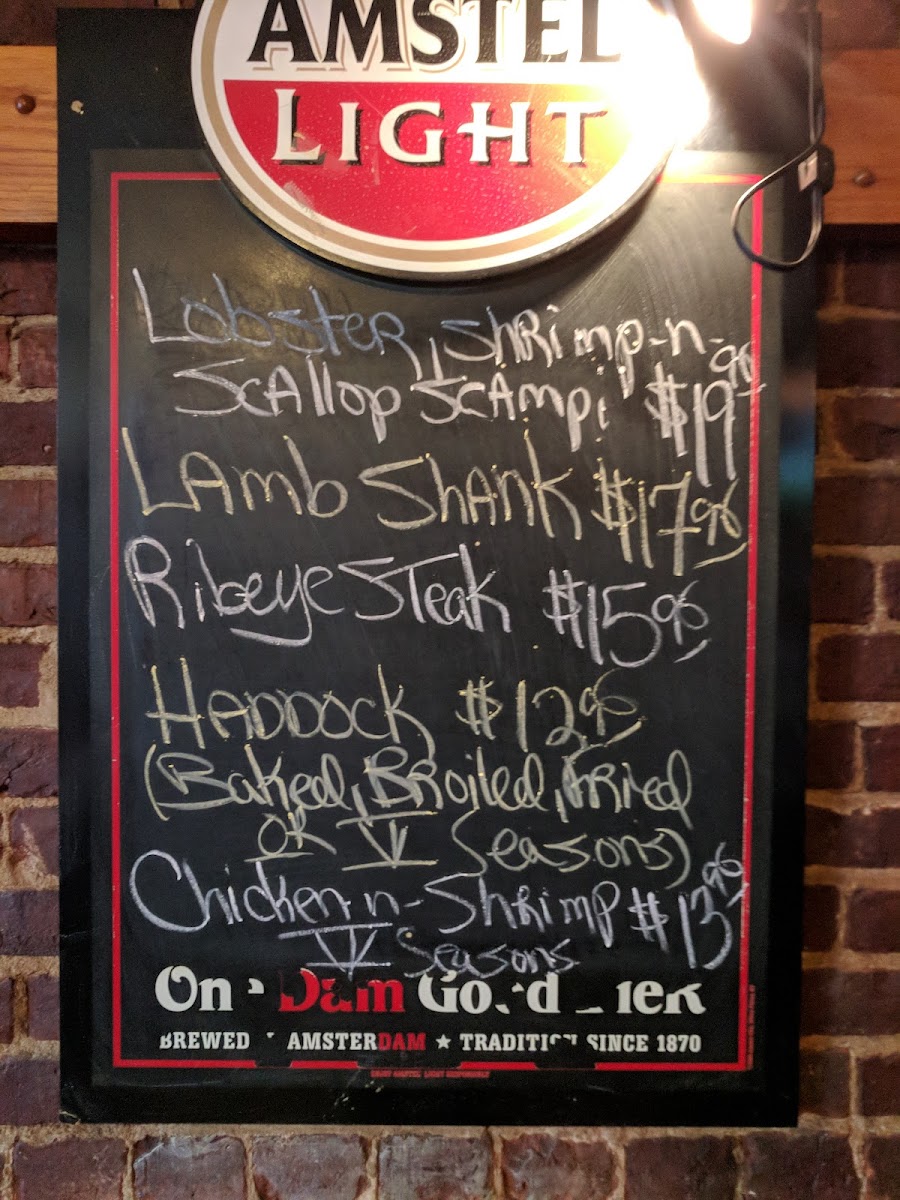 AMSTEL
LIGHT
Lobster, Shrimp-n-
Scallop Scampi $19.96
Lamb Shank $17.96
Ribeye Steak $15.96
Haddock $12.96
(Baked, Broiled, Fried
or V Seasons)
Chicken-n-Shrimp $13.96
V Seasons
On Dam
BREWED AMSTERDAM ★ TRADITION SINCE 1870